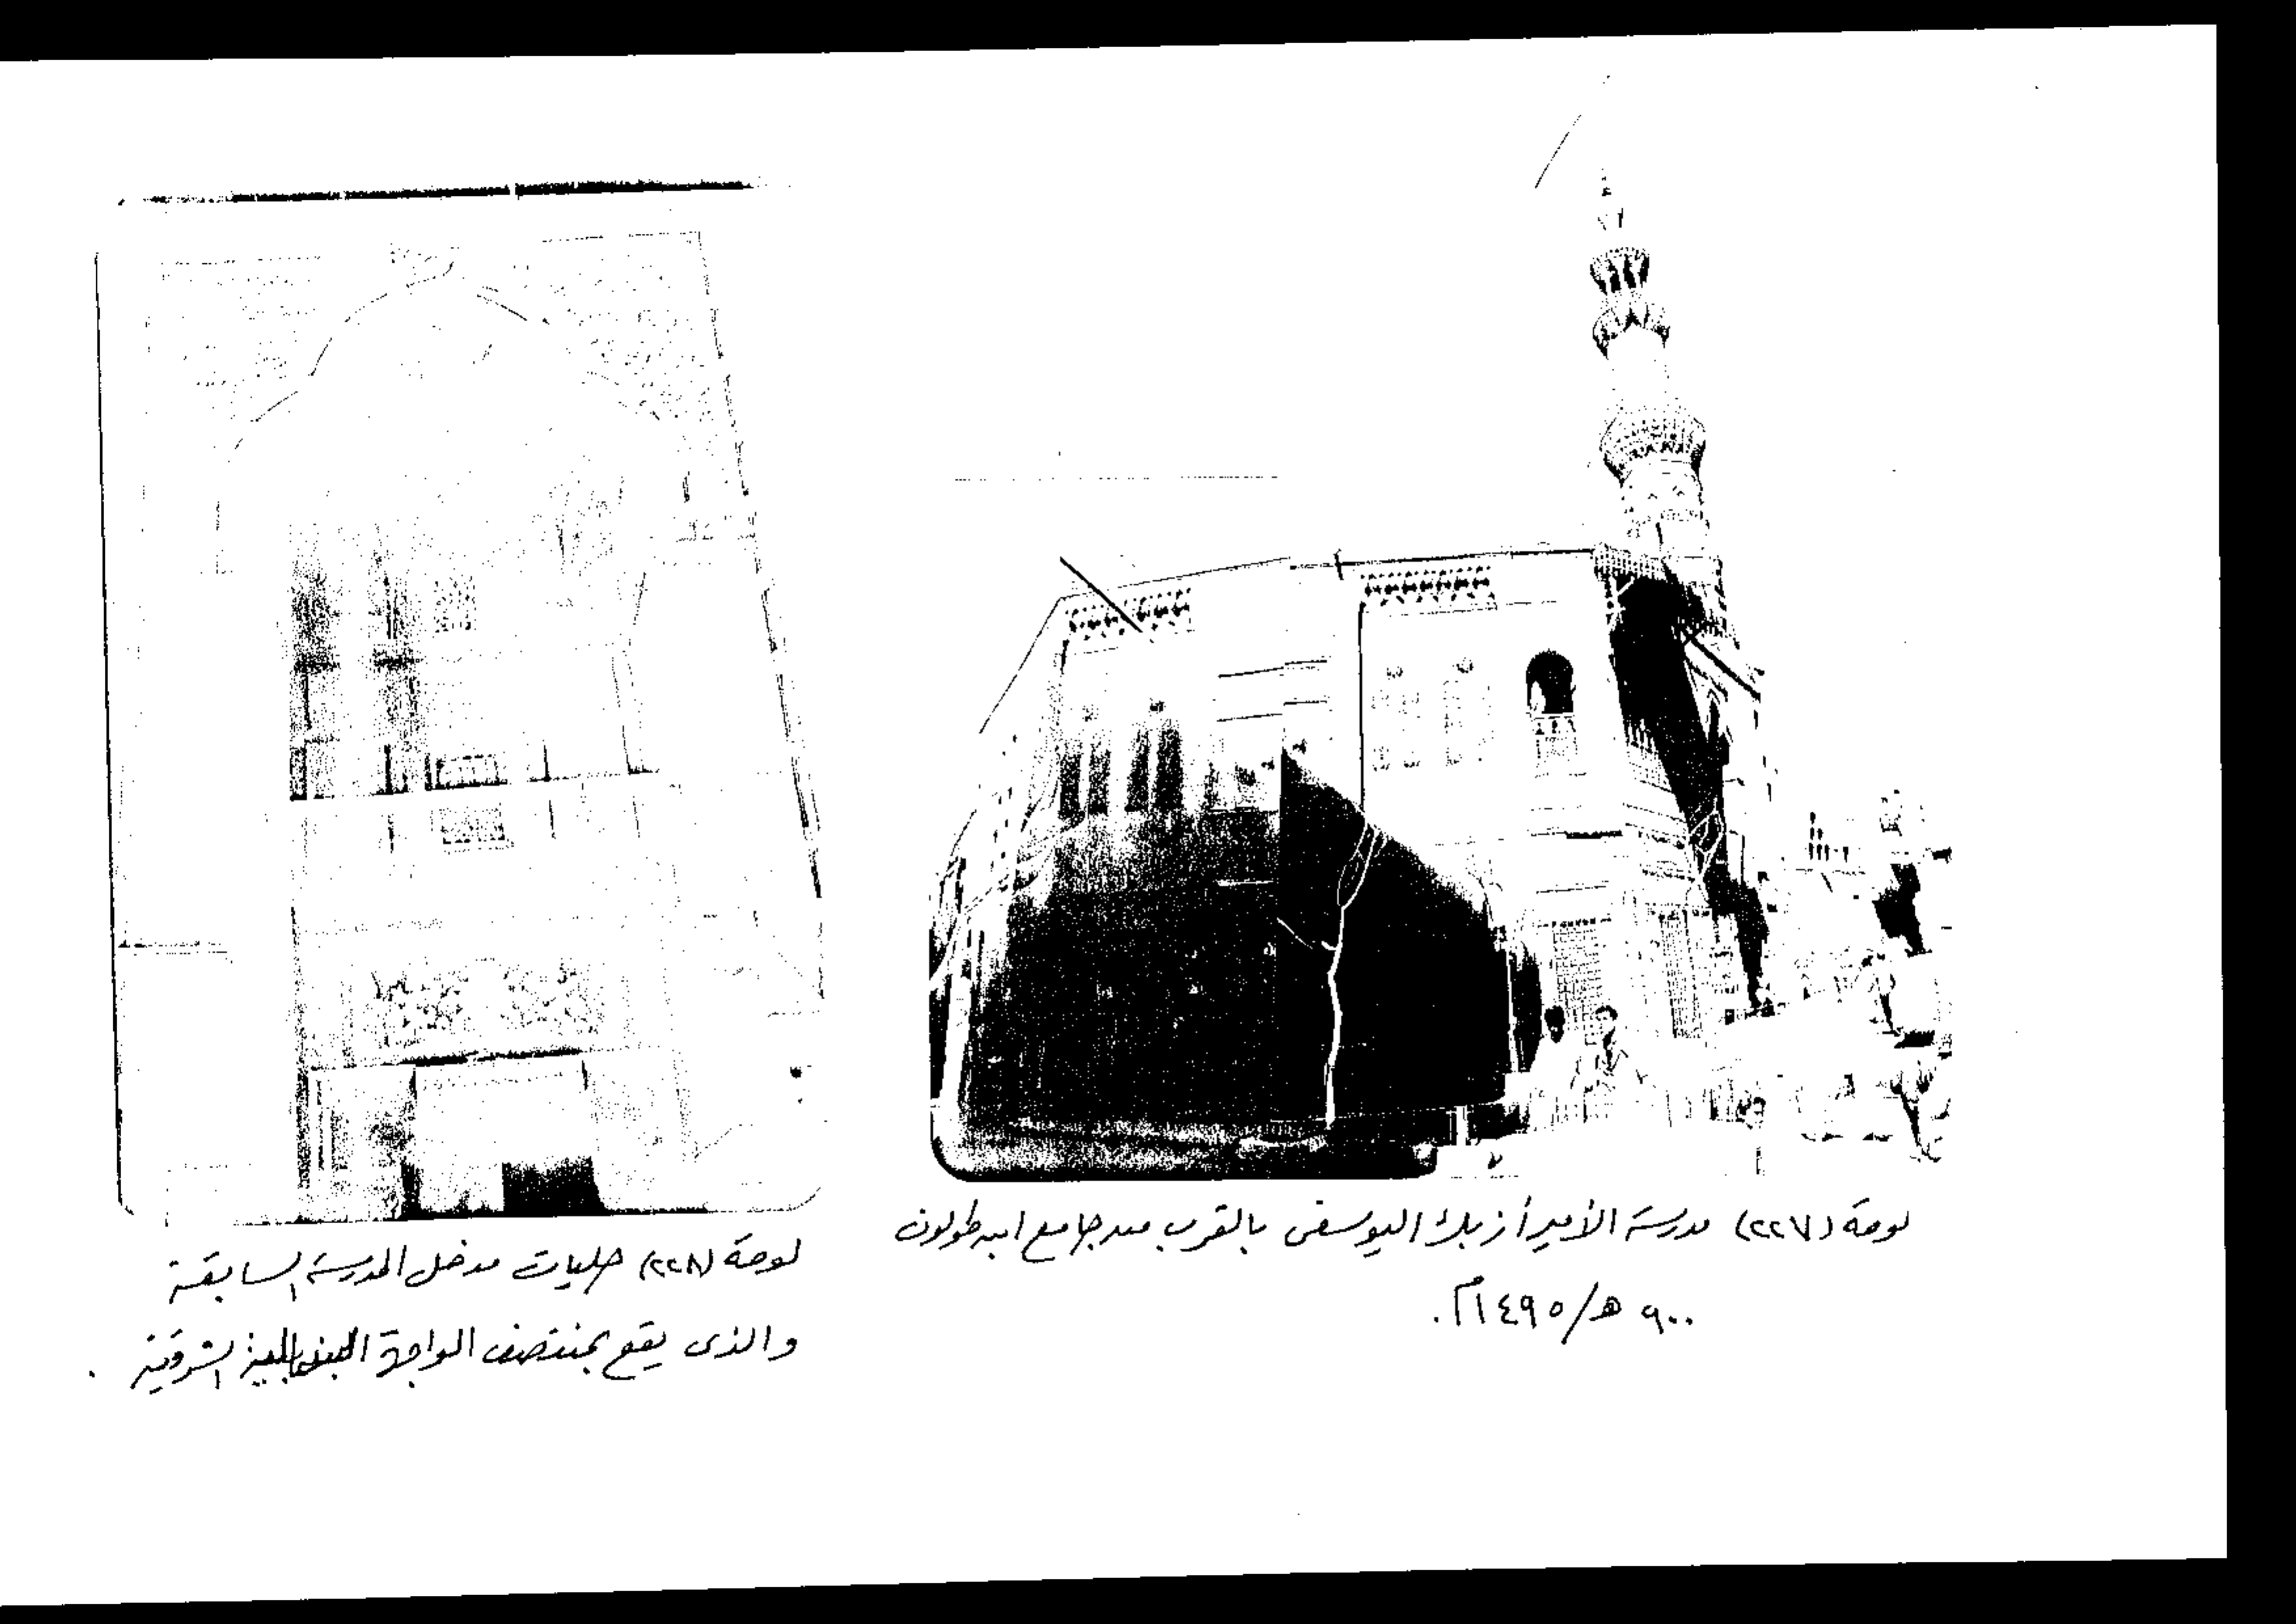 لوحة (٢٢٧) مدرسة الأمير أزبك اليوسفى بالقرب من جامع ابن طولون
٩٠٠ هـ/١٤٩٥م.
لوحة (٢٢٨) حليات مدخل المدرسة السابقة
والذى يقع بمنتصف الواجهة الشرقية .